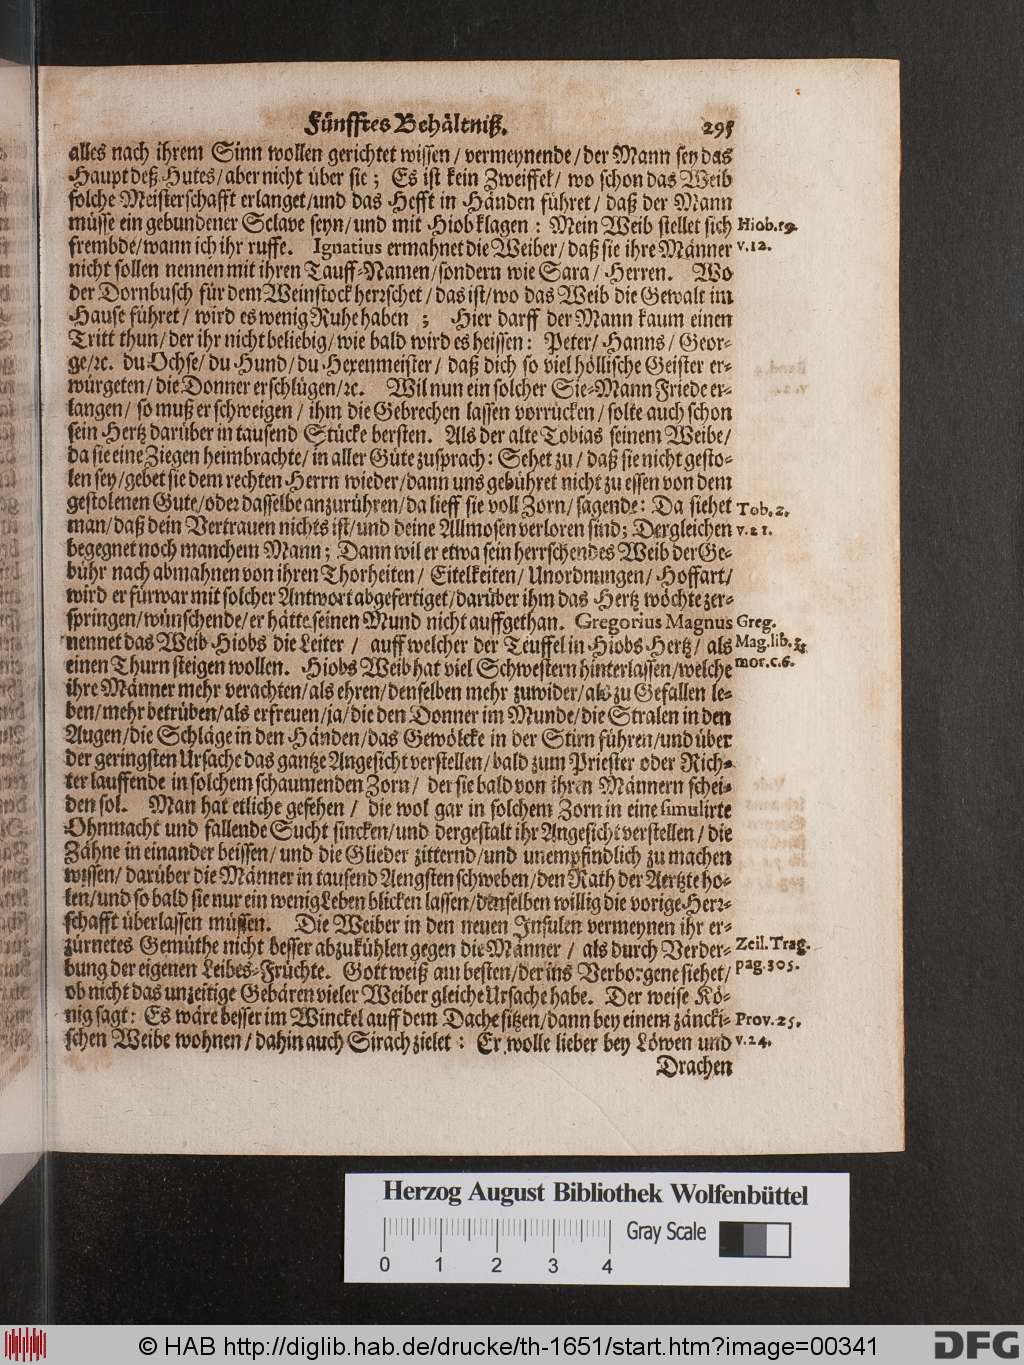 Fünfftes Behältniß. 295
alles nach ihrem Sinn wollen gerichtet wissen / vermeynende / der Mann sey das
Haupt deß Hutes / aber nicht über sie ; Es ist kein Zweiffel / wo schon das Weib
solche Meisterschafft erlanget / und das Hefft in Händen führet / daß der Mann
müsse ein gebundener Sclave seyn / und mit Hiob klagen : Mein Weib stellet sich
Hiob. 19.
frembde / wann ich ihr ruffe. Ignatius ermahnet die Weiber / daß sie ihre Männer
v. 12.
nicht sollen nennen mit ihren Tauff-Namen / sondern wie Sara / Herren. Wo
der Dornbusch für dem Weinstock herrschet / das ist / wo das Weib die Gewalt im
Hause führet / wird es wenig Ruhe haben ; Hier darff der Mann kaum einen
Tritt thun / der ihr nicht beliebig / wie bald wird es heissen : Peter / Hanns / Geor-
ge / ꝛc. du Ochse / du Hund / du Hexenmeister / daß dich so viel höllische Geister er-
würgeten / die Donner erschlügen / ꝛc. Wil nun ein solcher Sie-Mann Friede er-
langen / so muß er schweigen / ihm die Gebrechen lassen vorrücken / solte auch schon
sein Hertz darüber in tausend Stücke bersten. Als der alte Tobias seinem Weibe /
da sie eine Ziegen heimbrachte / in aller Güte zusprach : Sehet zu / daß sie nicht gesto-
len sey / gebet sie dem rechten Herrn wieder / dann uns gebühret nicht zu essen von dem
gestolenen Gute / oder dasselbe anzurühren / da lieff sie voll Zorn / sagende : Da siehet
Tob. 2.
man / daß dein Vertrauen nichts ist / und deine Allmosen verloren sind ; Dergleichen
v. 21.
begegnet noch manchem Mann ; Dann wil er etwa sein herrschendes Weib der Ge-
bühr nach abmahnen von ihren Thorheiten / Eitelkeiten / Unordnungen / Hoffart /
wird er fürwar mit solcher Antwort abgefertiget / darüber ihm das Hertz möchte zer-
springen / wünschende / er hätte seinen Mund nicht auffgethan. Gregorius Magnus
Greg.
nennet das Weib Hiobs die Leiter / auff welcher der Teuffel in Hiobs Hertz / als
Mag. lib. 3.
einen Thurn steigen wollen. Hiobs Weib hat viel Schwestern hinterlassen / welche
mor. c. 6.
ihre Männer mehr verachten / als ehren / denselben mehr zuwider / als zu Gefallen le-
ben / mehr betrüben / als erfreuen / ja / die den Donner im Munde / die Stralen in den
Augen / die Schläge in den Händen / das Gewölcke in der Stirn führen / und über
der geringsten Ursache das gantze Angesicht verstellen / bald zum Priester oder Rich-
ter lauffende in solchem schaumenden Zorn / der sie bald von ihren Männern schei-
den sol. Man hat etliche gesehen / die wol gar in solchem Zorn in eine simulirte
Ohnmacht und fallende Sucht sincken / und dergestalt ihr Angesicht verstellen / die
Zähne in einander beissen / und die Glieder zitternd / und unempfindlich zu machen
wissen / darüber die Männer in tausend Aengsten schweben / den Rath der Aertzte ho-
len / und so bald sie nur ein wenig Leben blicken lassen / denselben willig die vorige Herr-
schafft überlassen müssen. Die Weiber in den neuen Insulen vermeynen ihr er-
zürnetes Gemüthe nicht besser abzukühlen gegen die Männer / als durch Verder-
Zeil. Trag.
bung der eigenen Leibes-Früchte. Gott weiß am besten / der ins Verborgene siehet /
pag. 305.
ob nicht das unzeitige Gebären vieler Weiber gleiche Ursache habe. Der weise Kö-
nig sagt : Es wäre besser im Winckel auff dem Dache sitzen / dann bey einem zäncki-
Prov. 25.
schen Weibe wohnen / dahin auch Sirach zielet : Er wolle lieber bey Löwen und
v. 24.
Drachen
Herzog August Bibliothek Wolfenbüttel
Gray Scale
0 1 2 3 4
© HAB http://diglib.hab.de/drucke/th-1651/start.htm?image=00341
DFG